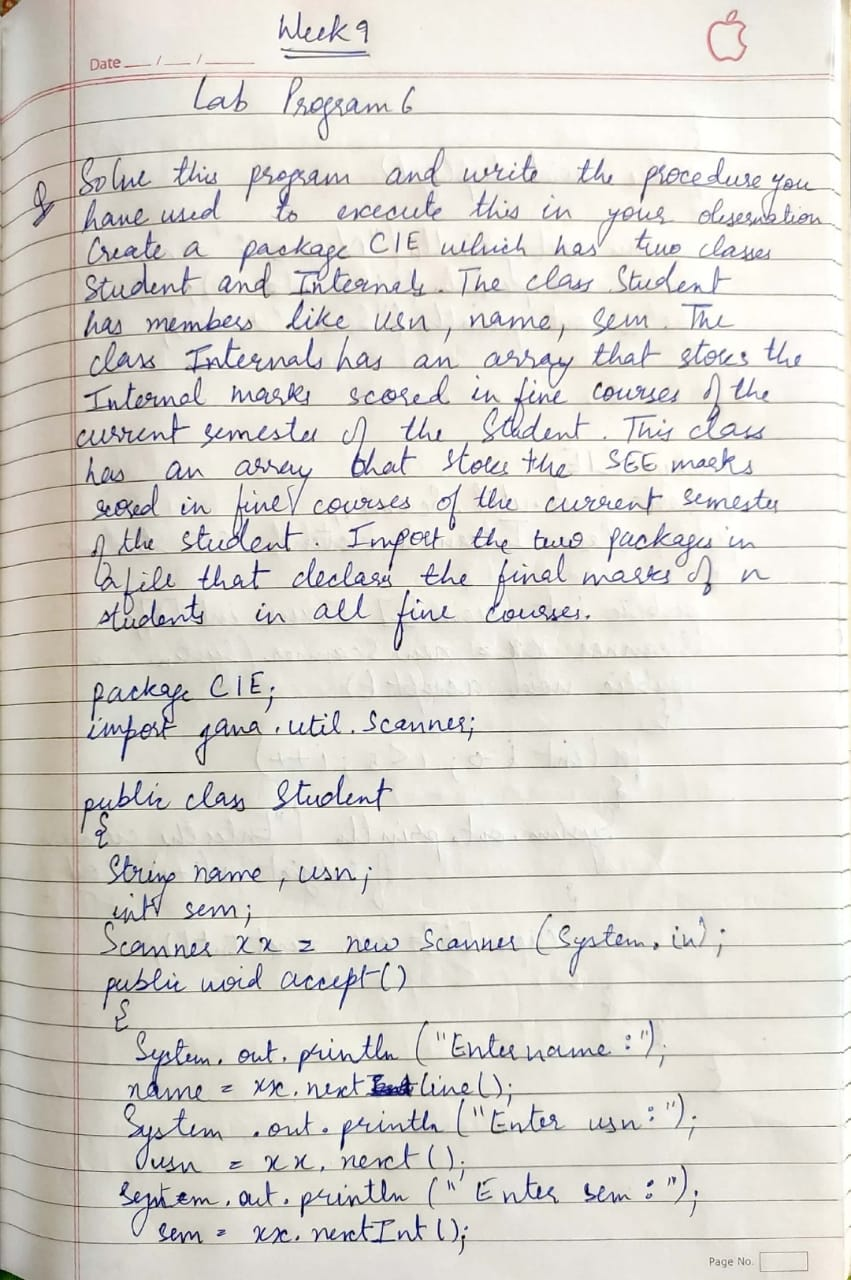 Week 9
Date __/__/____
Lab Program 6
Q Solve this program and write the procedure you
have used to execute this in your observation
Create a package CIE which has two classes
Student and Internals. The class Student
has members like usn, name, sem. The
class Internals has an array that stores the
Internal marks scored in five courses of the
current semester of the Student. This class
has an array that stores the SEE marks
scored in five courses of the current semester
of the student. Import the two packages in
a file that declares the final marks of n
students in all five courses.
package CIE;
import java.util.Scanner;
public class Student
{
String name, usn;
int sem;
Scanner xx = new Scanner (System.in);
public void accept()
{
System.out.println ("Enter name :");
name = xx.next line();
System.out.println ("Enter usn:");
usn = xx.next();
System.out.println ("Enter sem :");
sem = xx.nextInt();
Page No.